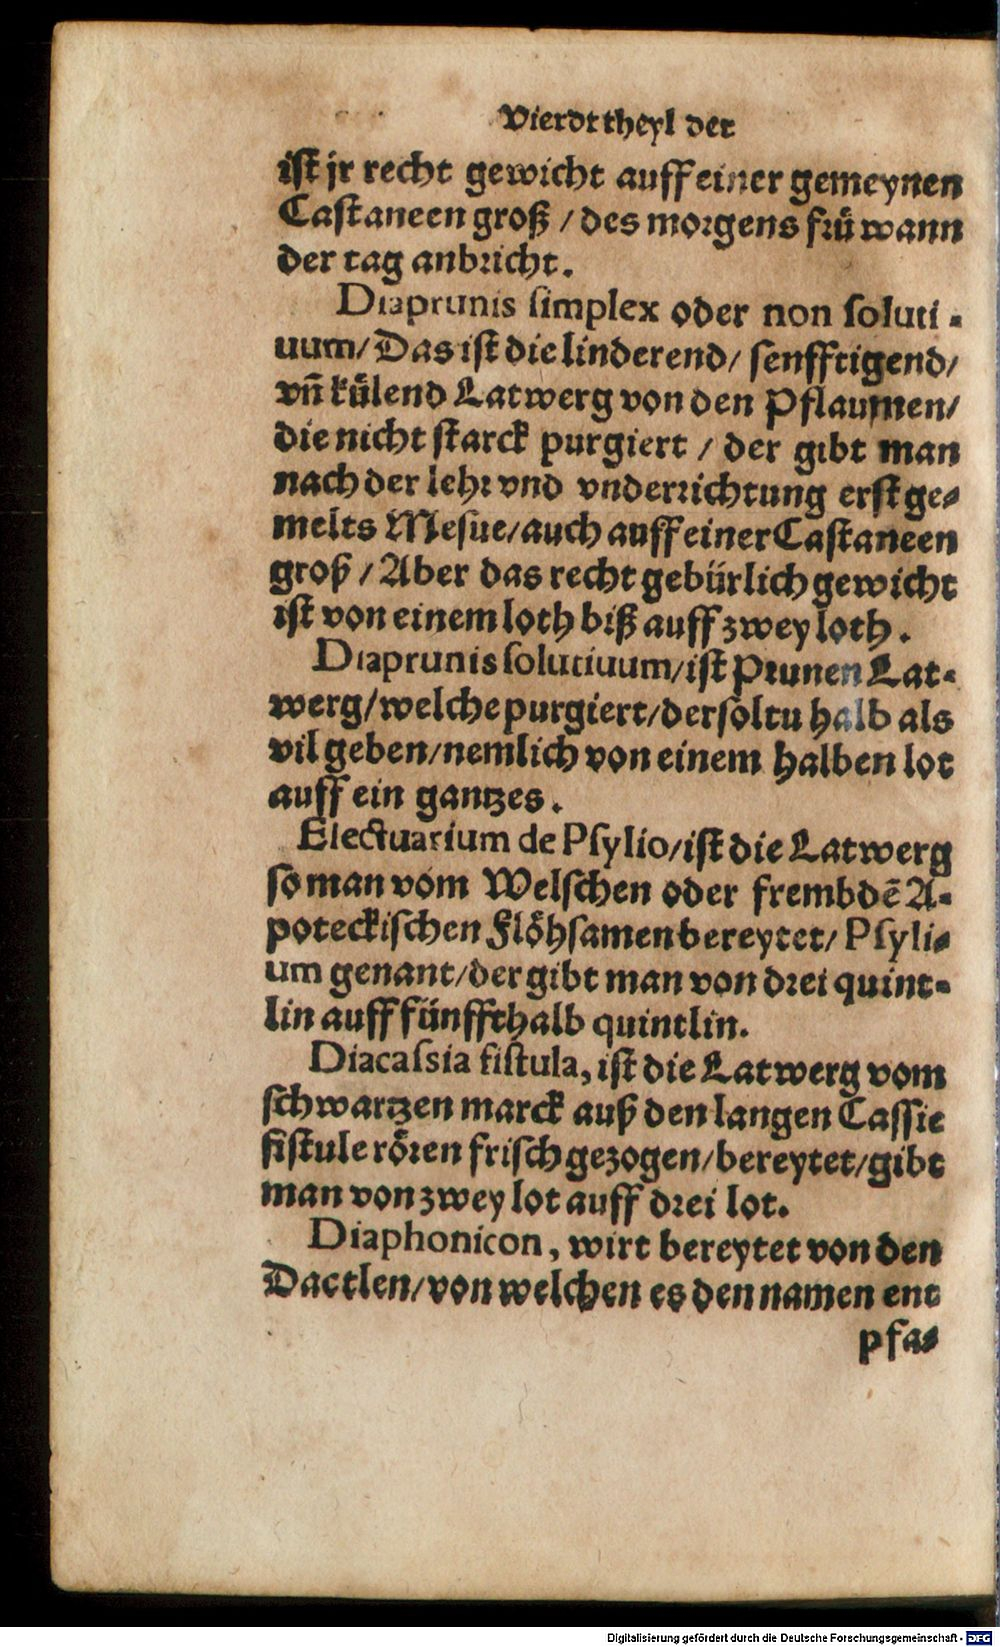 Vierdt theyl der
ist jr recht gewicht auff einer gemeynen
Castaneen groß / des morgens fruͤ wann
der tag anbricht.
Diaprunis simplex oder non soluti-
uum/ Das ist die linderend/ senfftigend/
vñ kuͤlend Latwerg von den Pflaumen/
die nicht starck purgiert / der gibt man
nach der lehr vnd vnderrichtung erst ge-
melts Mesue/ auch auff einer Castaneen
groß / Aber das recht gebürlich gewicht
ist von einem loth biß auff zwey loth.
Diaprunis solutiuum/ ist Prunen Lat-
werg/ welche purgiert/ der soltu halb als
vil geben/ nemlich von einem halben lot
auff ein gantzes.
Electuarium de Psylio/ ist die Latwerg
so man vom Welschen oder frembdē A-
poteckischen Floͤhsamen bereytet/ Psyli-
um genant/ der gibt man von drei quint-
lin auff fünffthalb quintlin.
Diacassia fistula, ist die Latwerg vom
schwartzen marck auß den langen Cassie
fistule roͤren frisch gezogen/ bereytet/ gibt
man von zwey lot auff drei lot.
Diaphonicon, wirt bereytet von den
Dactlen/ von welchen es den namen ent
pfa-
Digitalisierung gefördert durch die Deutsche Forschungsgemeinschaft - DFG